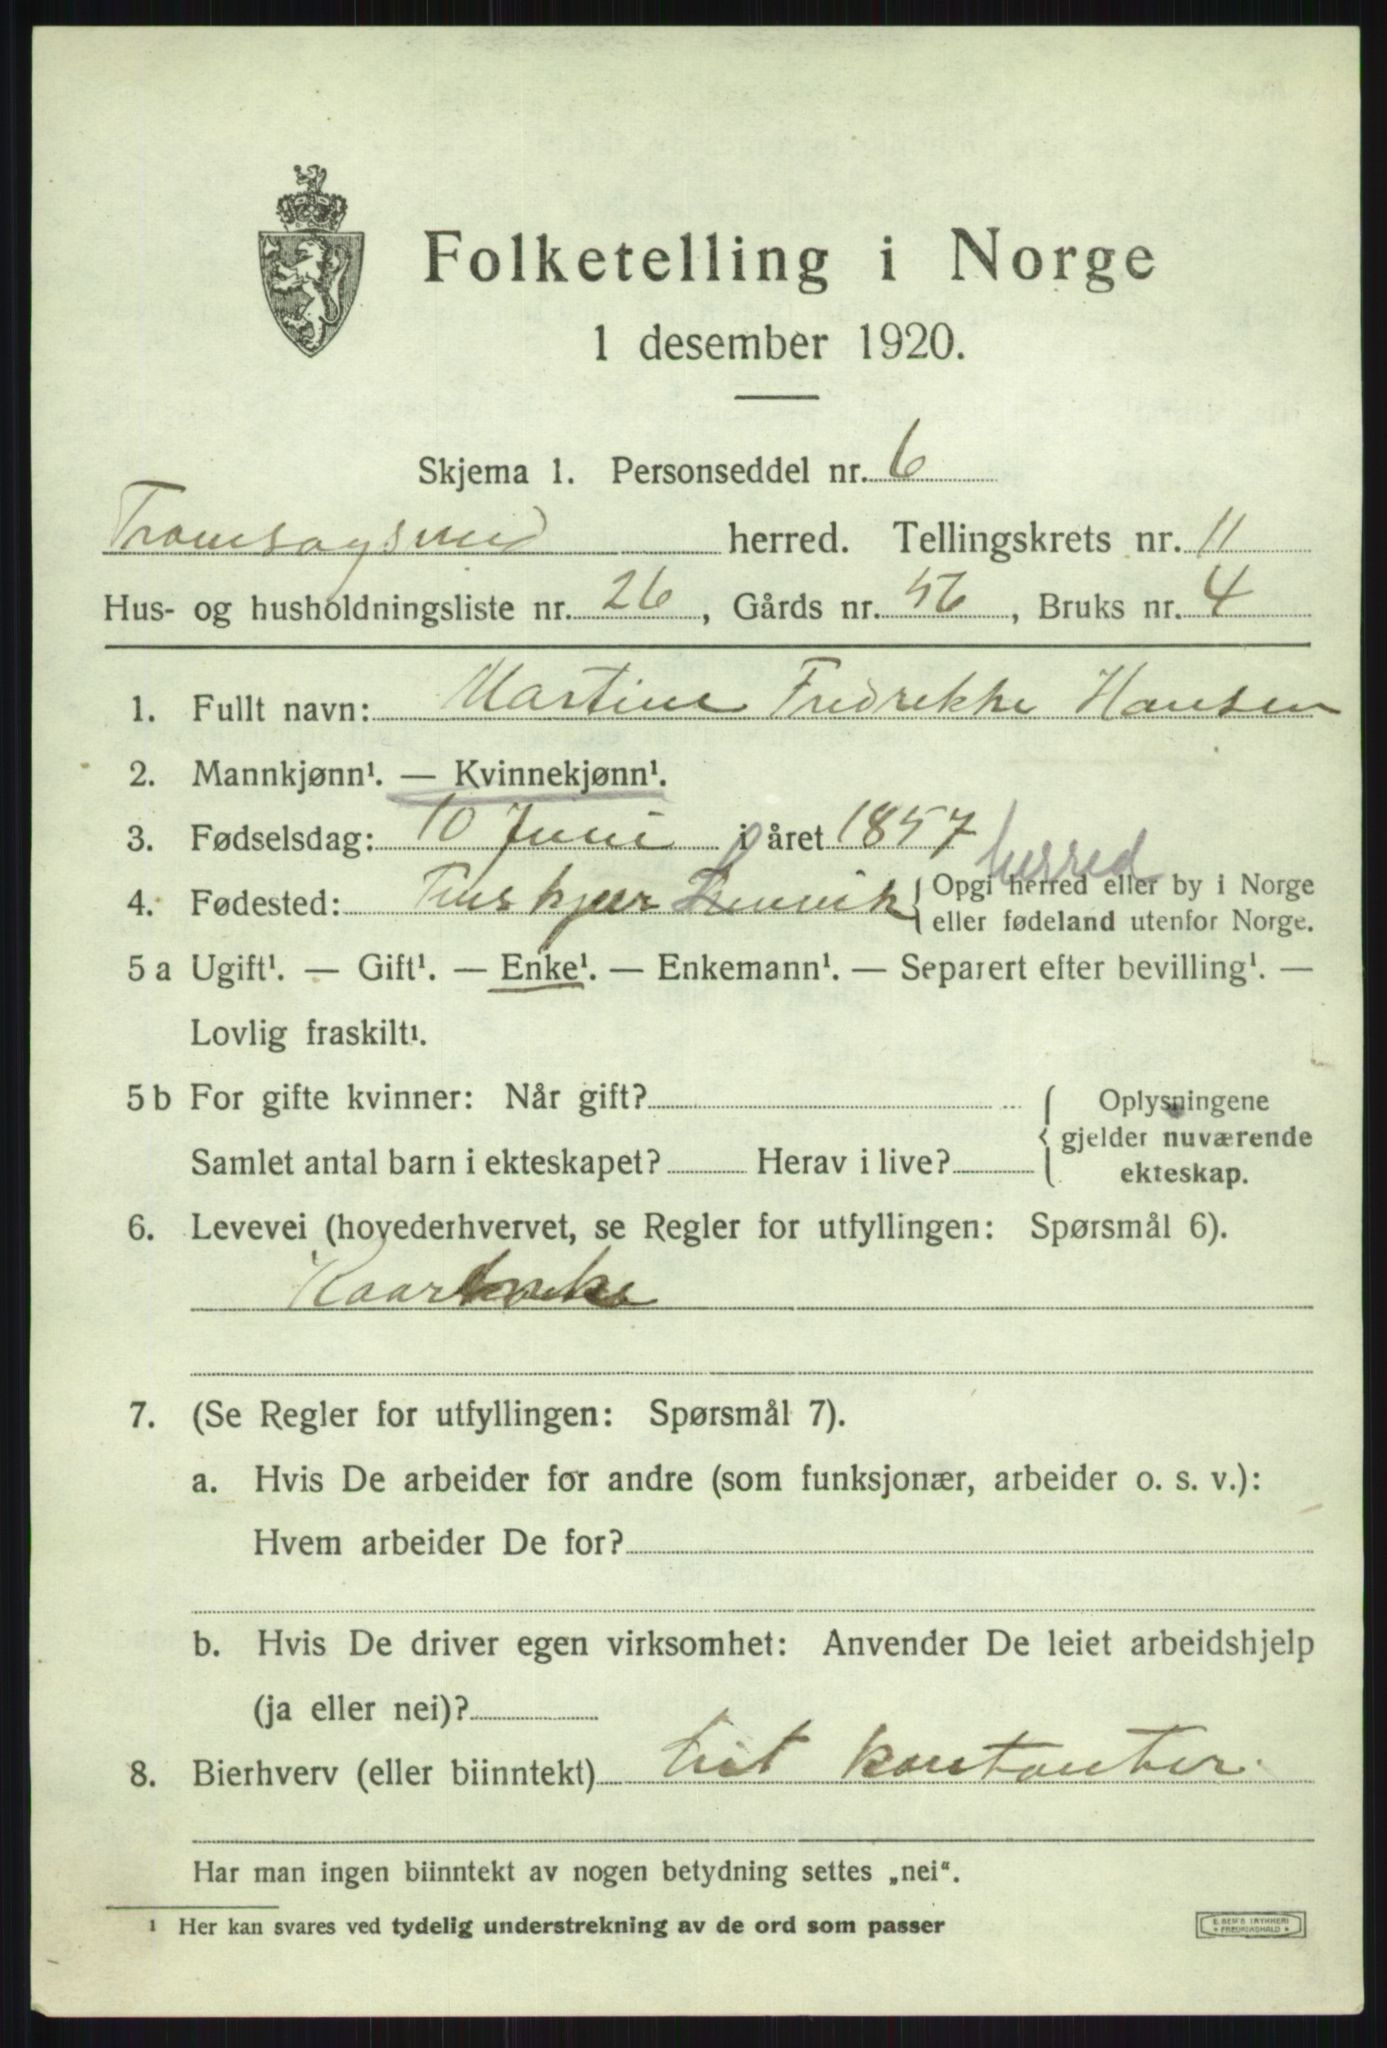 Folketelling i Norge
1 desember 1920.
Skjema 1. Personseddel nr. 6
Tromsøysund herred. Tellingskrets nr. 11
Hus- og husholdningsliste nr. 26, Gårds nr. 56, Bruks nr. 4
1. Fullt navn: Martine Fredrekke Hansen
2. Mannkjønn¹. — Kvinnekjønn¹.
3. Fødselsdag: 10 Juni i året 1857
herred
4. Fødested: Lenvik { Opgi herred eller by i Norge
eller fødeland utenfor Norge.
5 a Ugift¹. — Gift¹. — Enke¹. — Enkemann¹. — Separert efter bevilling¹. —
Lovlig fraskilt¹.
5 b For gifte kvinner: Når gift? { Oplysningene
gjelder nuværende
Samlet antal barn i ekteskapet? Herav i live?
ekteskap.
6. Levevei (hovederhvervet, se Regler for utfyllingen: Spørsmål 6).
7. (Se Regler for utfyllingen: Spørsmål 7).
a. Hvis De arbeider for andre (som funksjonær, arbeider o. s. v.):
Hvem arbeider De for?
b. Hvis De driver egen virksomhet: Anvender De leiet arbeidshjelp
(ja eller nei)?
8. Bierhverv (eller biinntekt) kontanter
Har man ingen biinntekt av nogen betydning settes „nei“.
¹ Her kan svares ved tydelig understrekning av de ord som passer
E. SEM'S TRYKKERI
FREDRIKSHALD